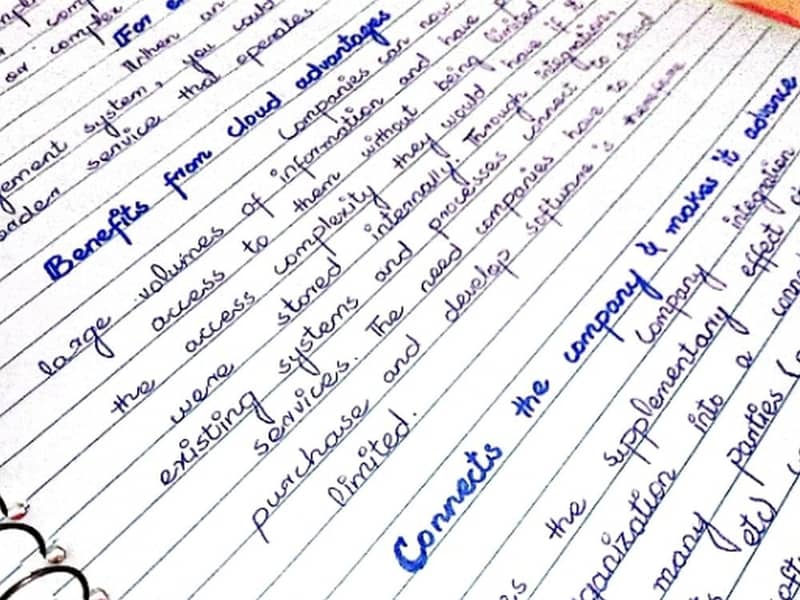 or complex
[For
When an
gement system, you could
order service that operates
Benefits from cloud advantages
Companies can now
large volumes of information and have
access to them without being limited
the access complexity they would have if it
were stored internally. Through integration,
existing systems and processes connect to cloud
services. The need companies have to
purchase and develop software is therefore
limited.
Connects the company & makes it advance
Company integration
the supplementary effect
ganization into a
many parties
etc)